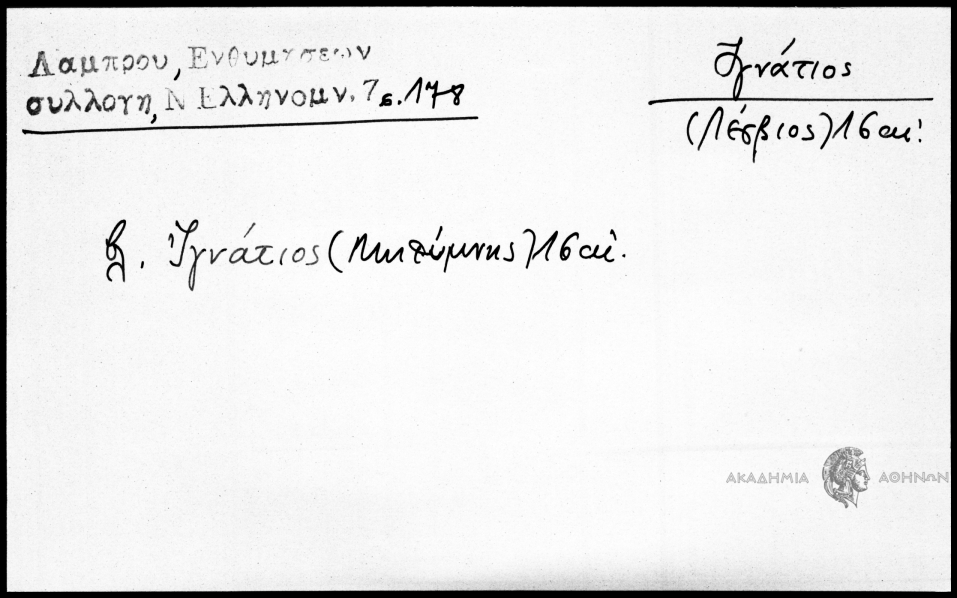 Λαμπρου, Ενθυμησεων
συλλογη, Ν Ελληνομν. 7 σ. 178
Ἰγνάτιος
(Λέσβιος) 16 αἰ.
β. Ἰγνάτιος (Μηθύμνης) 16 αἰ.
ΑΚΑΔΗΜΙΑ ΑΘΗΝΩΝ